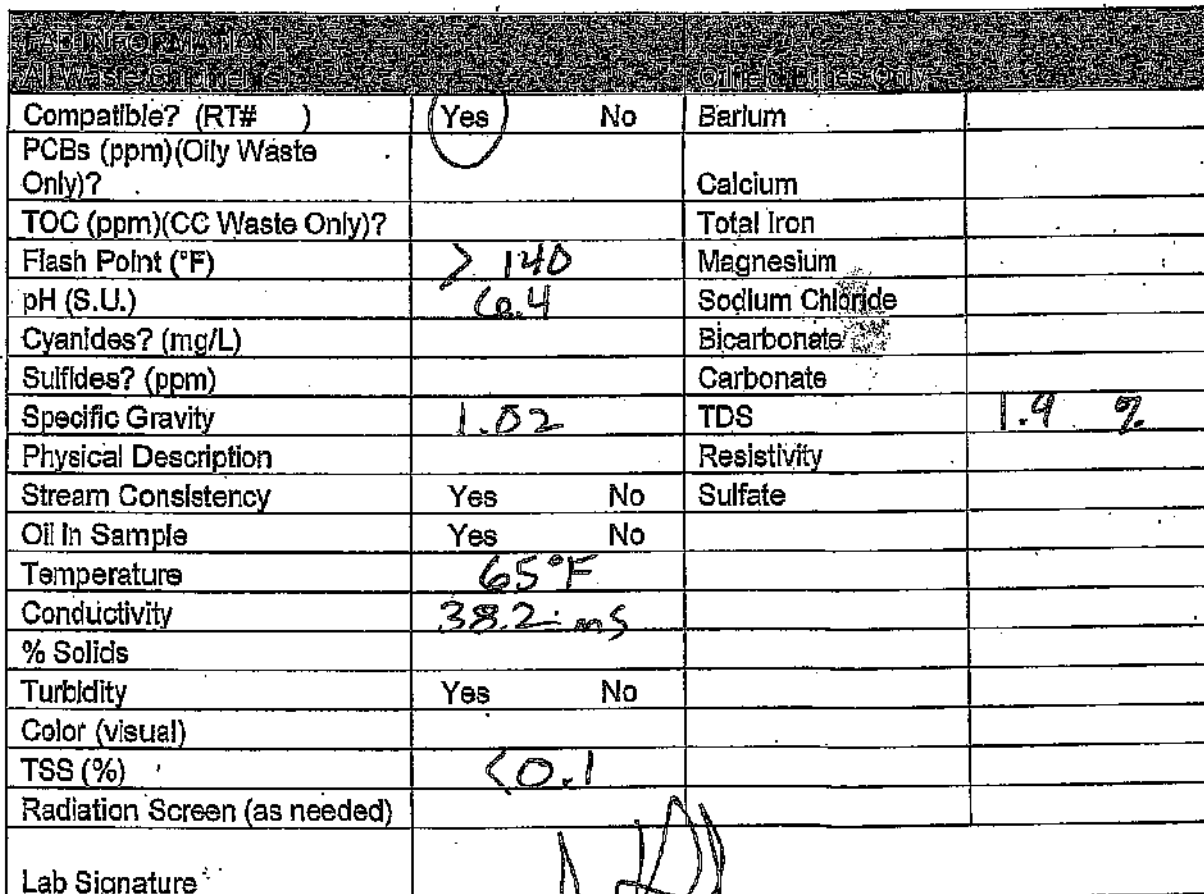 LAB INFORMATION
All Waste Shipments Oilfield Brines Only
Compatible? (RT# ) Yes No Barium
PCBs (ppm)(Oily Waste
Only)? Calcium
TOC (ppm)(CC Waste Only)? Total Iron
Flash Point (°F) > 140 Magnesium
pH (S.U.) 6.4 Sodium Chloride
Cyanides? (mg/L) Bicarbonate
Sulfides? (ppm) Carbonate
Specific Gravity 1.02 TDS %
Physical Description Resistivity
Stream Consistency Yes No Sulfate
Oil in Sample Yes No
Temperature 65°F
Conductivity 38.2 ms
% Solids
Turbidity Yes No
Color (visual)
TSS (%) <0.1
Radiation Screen (as needed)
Lab Signature